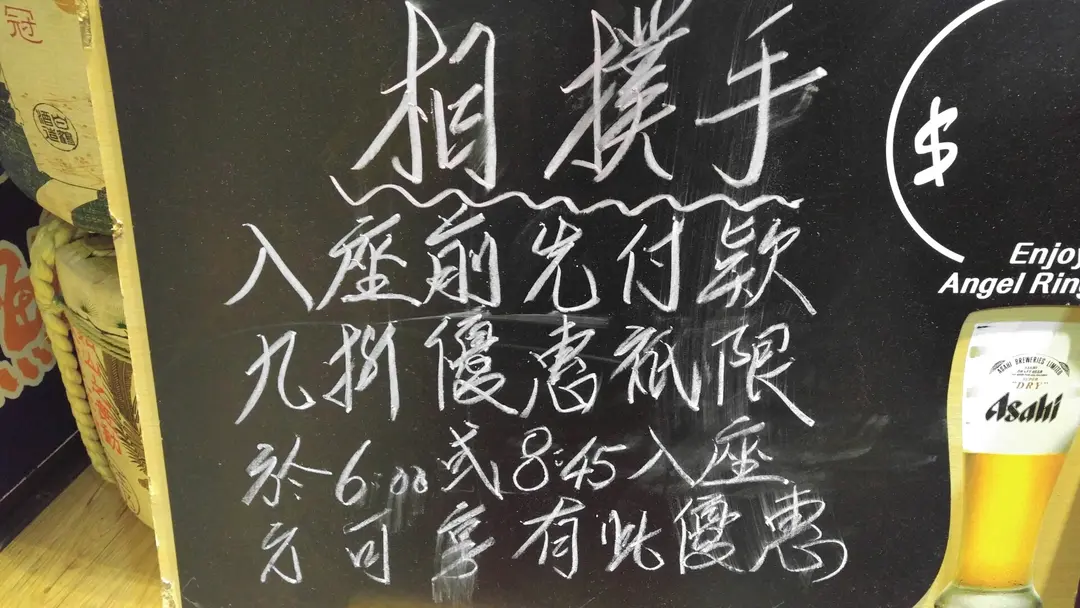 相撲手
入座前先付款
九折優惠祗限
於6:00或8:45入座
方可享有此優惠
$
Enjoy
Angel Rin
ASAHI BREWERIES LIMITED
"DRY"
Asahi
冠